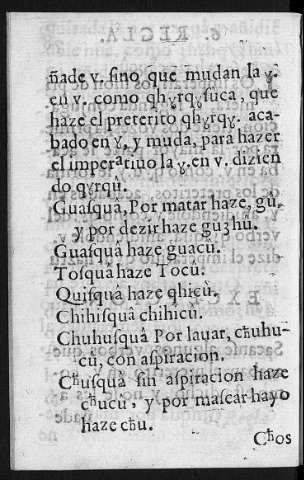 ñade v. sino que mudan la ɣ.
en v. como qhɣtqɣsuca, que
haze el preterito qhɣtqɣ. aca-
bado en ɣ, y muda, para hazer
el imperatiuo la ɣ. en v. dizien
do qɣtqu.
Guasquâ, Por matar haze, gū,
y por dezir haze guʒhū.
Guasquâ haze guacū.
Tosquâ haze Tocū.
Quisquâ haze qhicū.
Chihisquâ chihicū.
Chuhusquâ Por lauar, chuhu-
cū, con aspiracion.
Cʰusquâ sin aspiracion haze
cʰucū, y por mascar hayo
haze cħu.
Cʰos